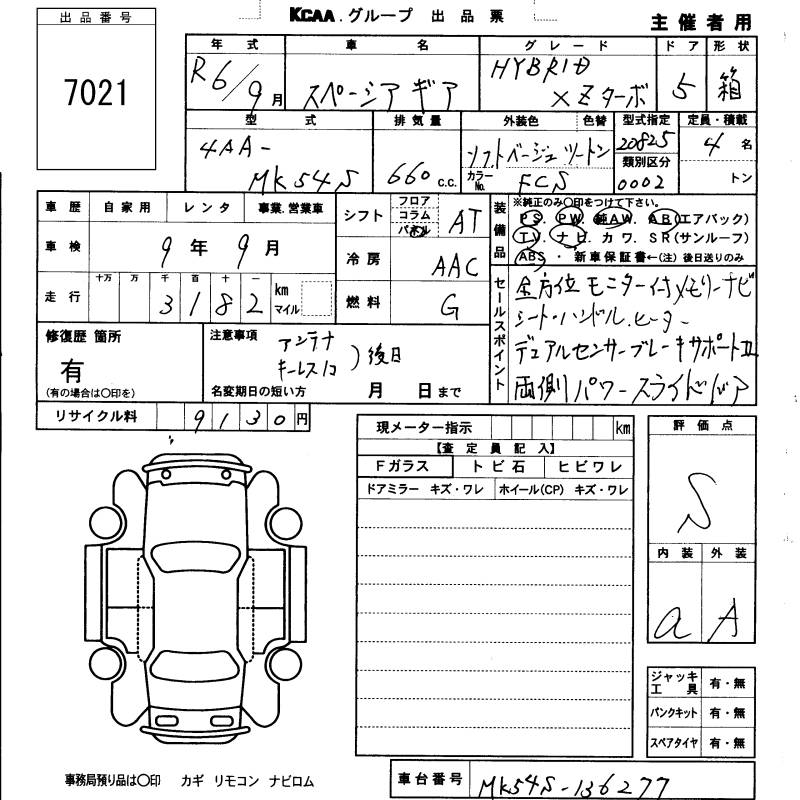 出品番号
7021
KCAA.グループ 出品票
主催者用
年式 車名 グレード ドア 形状
R6/9月 スペーシアギア HYBRID XZターボ 5 箱
型式 排気量 外装色 色替 型式指定 定員・積載
4AA-MK54S 660 c.c. ソフトベージュ ツートン 20825 4名
カラーNo. FCS 類別区分 0002 トン
車歴 自家用 レンタ 事業.営業車
車検 9年9月
走行 十万 万 千 百 十 一
3182 km マイル
シフト フロア コラム パネル AT
冷房 AAC
燃料 G
装備品 ※純正のみ〇印をつけて下さい。
PS. PW. 純AW. AB(エアバック)
TV. ナビ. カワ. SR(サンルーフ)
ABS ・ 新車保証書←(注)後日送りのみ
セールスポイント
全方位モニター付メモリーナビ
シート・ハンドルヒーター
デュアルセンサーブレーキサポートII
両側パワースライドドア
修復歴 箇所
有
(有の場合は〇印を)
注意事項
アンテナ
キーレス1コ )後日
名変期日の短い方 月 日まで
リサイクル料 9130円
現メーター指示 km
【査定員記入】
Fガラス トビ石 ヒビワレ
ドアミラー キズ・ワレ ホイール(CP) キズ・ワレ
評価点
S
内装 外装
a A
ジャッキ工具 有・無
パンクキット 有・無
スペアタイヤ 有・無
事務局預り品は〇印 カギ リモコン ナビロム
車台番号 MK54S-136277